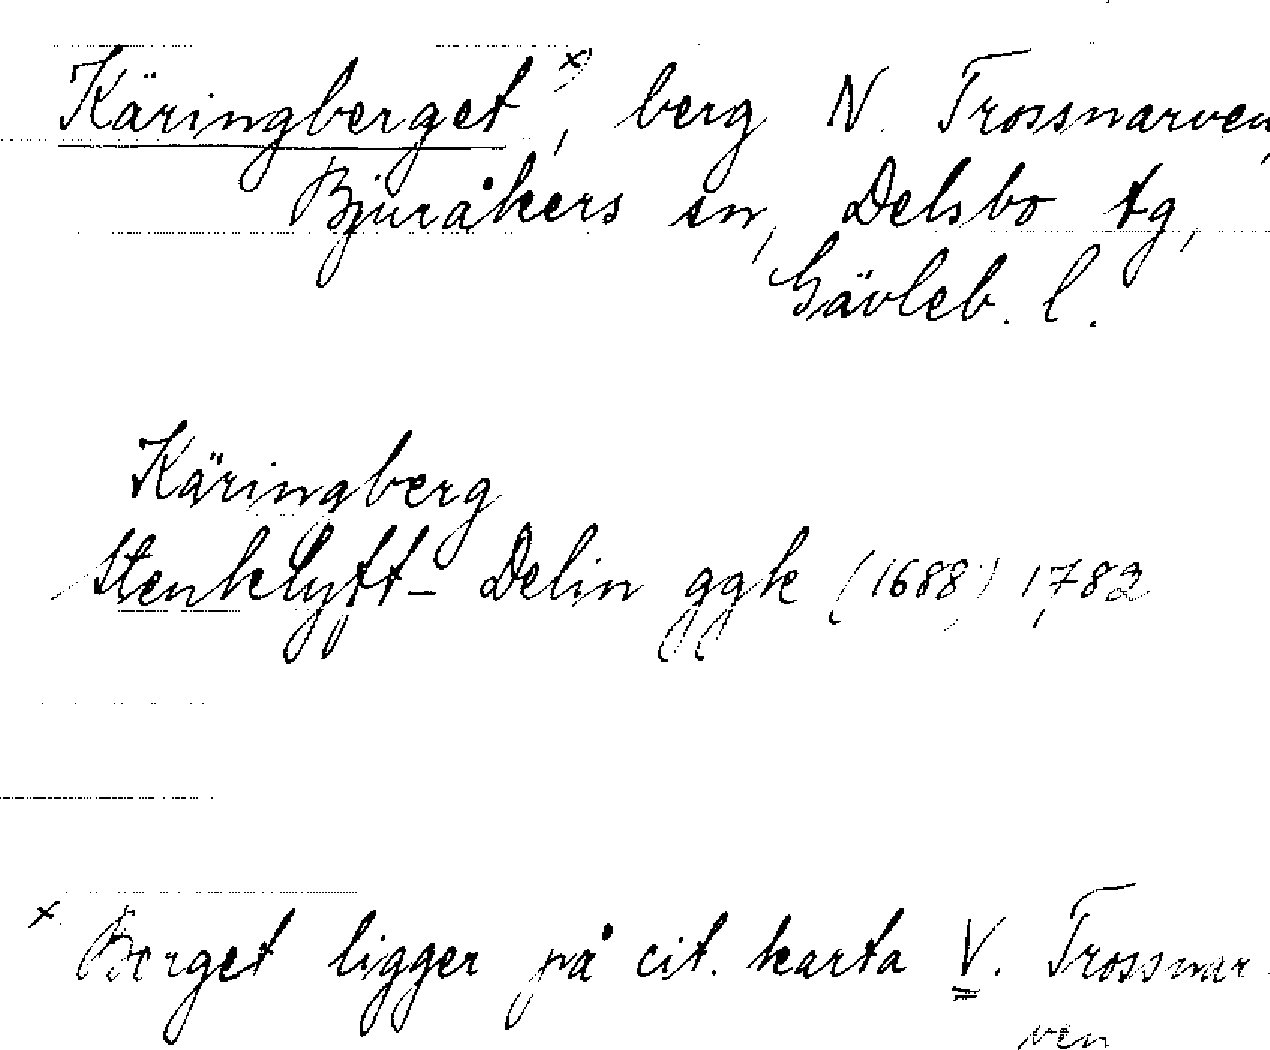 Käringberget x), berg N. Trossnarven,
Bjuråkers sn, Delsbo tg,
Gävleb. l.
Käringberg
Stenklyft- Delin ggk (1688) 1782
x Berget ligger på cit. karta V. Trossnar-
ven